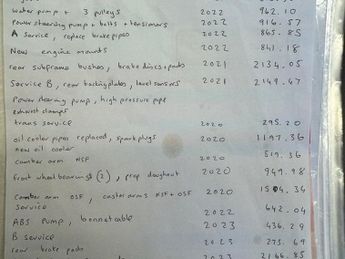 water pump + 3 pulleys 2022 942.10
Power steering pump + belts + tensioners 2022 916.57
A Service, replace brake pipes 2022 865.85
New engine mounts 2022 841.18
rear subframe bushes, brake discs + pads 2021 2134.05
Service B, rear backing plates, level sensors 2021 2149.47
Power steering pump, high pressure pipe
exhaust clamps
trans service 2020 295.20
oil cooler pipes replaced, spark plugs 2020 1197.36
new oil cooler
camber arm NSF 2020 519.36
Front wheel bearings (2), prop doughnut 2020 949.98
camber arm OSF, castor arms NSF + OSF 2020 1504.36
Service 2022 642.04
ABS Pump, bonnet cable 2023 436.29
B service 2023 273.69
rear brake pads 2023 2146.85